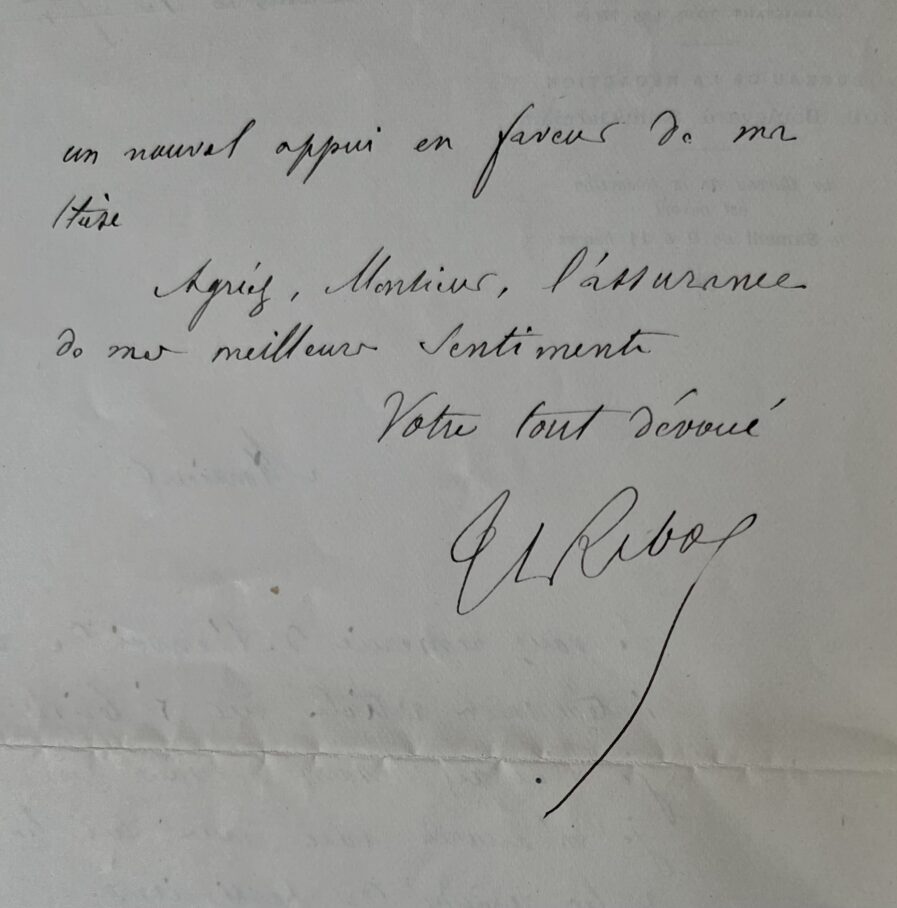 un nouvel appui en faveur de ma
thèse
Agréez, Monsieur, l'assurance
de mes meilleurs sentiments
Votre tout dévoué
Th Ribot